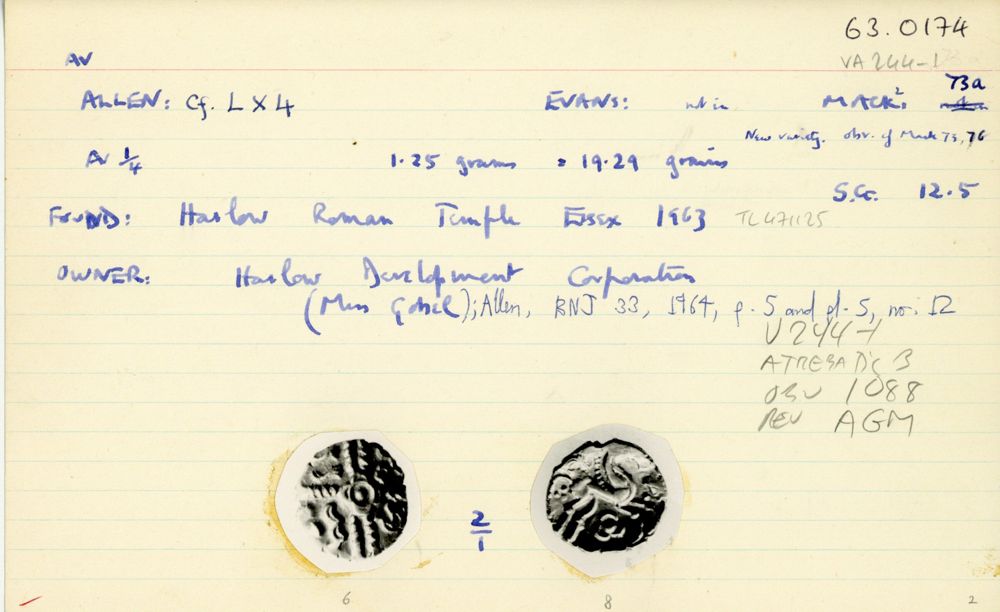 63.0174
AV VA 244-1
73a
ALLEN: Cf. L X 4 EVANS: not in MACK²:
New variety. obv. cf Mack 73, 76
AV 1/4 1.25 grams = 19.29 grains
S.G. 12.5
FOUND: Harlow Roman Temple Essex 1963 TL 471125
OWNER: Harlow Development Corporation
(Miss); Allen, BNJ 33, 1964, p. 5 and pl. 5, no. 12
V244-1
ATREBATIC B
OBV 1088
REV AGM
2/1
6 8 2